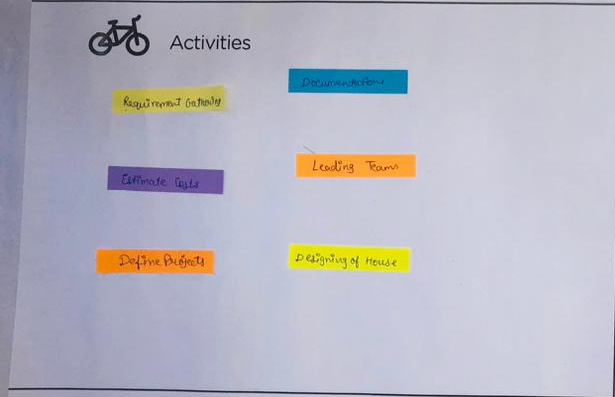 Activities
Requirement Gathering
Documentation
Estimate Costs
Leading Teams
Define Projects
Designing of House